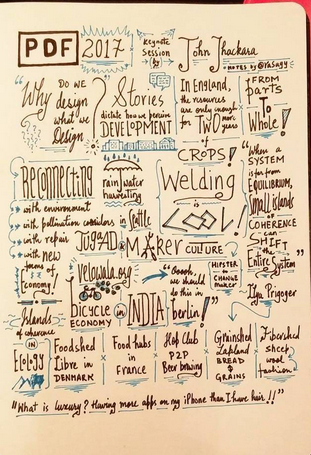 PDF 2017
keynote
Session
by
John Thackara
NOTES BY @YASAGY
"Why
DO WE
design
what we
Design
?"
Stories
dictate how we perceive
DEVELOPMENT
In England,
the resources
are only enough
for TWO more
years
of
CROPS!
FROM
parts
To
Whole!
Reconnecting
with environment
with pollination corridors
with repair
with new
forms of
Economy!
rain water
harvesting
in Seattle
JUGAAD &
MAKER CULTURE
Welding
is
LOVE!
"When a
SYSTEM
is far from
EQUILIBRIUM,
small islands
of
COHERENCE
can
SHIFT
the
Entire System"
Ilya Prigoger
velowala.org
BICYCLE in INDIA
ECONOMY
"Ooooh,
we should
do this in
berlin!"
HIPSTER
to
CHANGE
MAKER
Islands
of coherence
IN
Foodshed
Libre in
DENMARK
Food hubs
in
France
Hop Club
P2P
Beer brewing
Grainshed
Lapland
BREAD
&
GRAINS
Fibershed
sheep
wool
fashion
"What is luxury? Having more apps on my iPhone than I have hair!!"